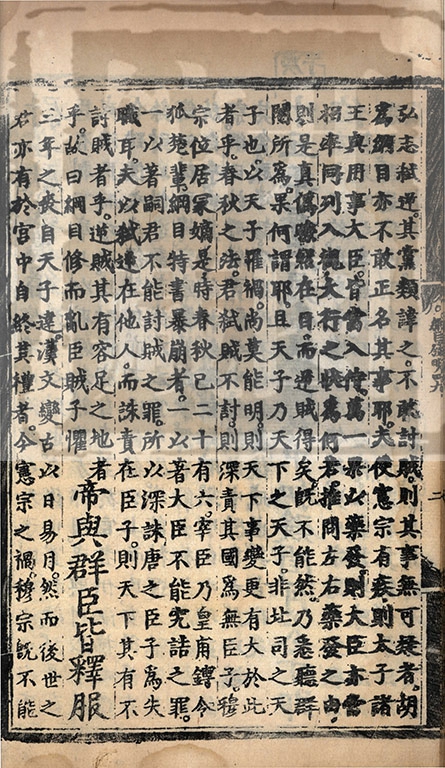 弘志弑逆。其黨類諱之。不敢討賊。則其事無可疑者。胡
爲綱目亦不敢正名其事耶。夫使憲宗有疾。則太子諸
王與用事大臣。皆當入侍。萬一果以藥發。則大臣亦當
招率同列入視大行之狀爲何若。推問左右藥發之由。
則是真僞瞭然在目。而逆賊得矣。既不能然。乃悉聽群
閹所爲。果何謂耶。且天子乃天下之天子。非北司之天
子也。以天子罹禍。尚莫能明。則天下事變更有大於此
者乎。春秋之法。君弑賊不討。則深責其國爲無臣子。穆
宗位居冢嫡。是時春秋已二十有六。宰臣乃皇甫鎛令
狐楚輩。綱目特書暴崩者。一以著大臣不能究詰之罪。
一以著嗣君不能討賊之罪。所以深誅唐之臣子爲失
職耳。夫以弑逆在他人。而誅責在臣子。則天下其有不
討賊者乎。逆賊其有容足之地者
乎。故曰綱目修而亂臣賊子懼
帝與群臣皆釋服
三年之喪。自天子達。漢文變古。以日易月。然而後世之
君。亦有於宮中自終其禮者。今憲宗之禍。穆宗既不能